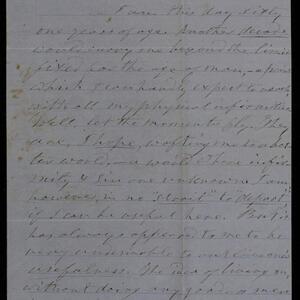 I am this day sixty
one years of age. Another decade
would carry me beyond the limit
fixed for the age of man, a period
which I can hardly expect to reach
with all my physical infirmities.
Well, let the moments fly. They
are, I hope, wafting me to a bet-
ter world, a world where infir-
mity & sin are unknown. I am,
however, in no "strait" to "depart",
if I can be useful here. But it
has always appeared to me to be
very
usefulness. The idea of living on,
without doing any good, a mere